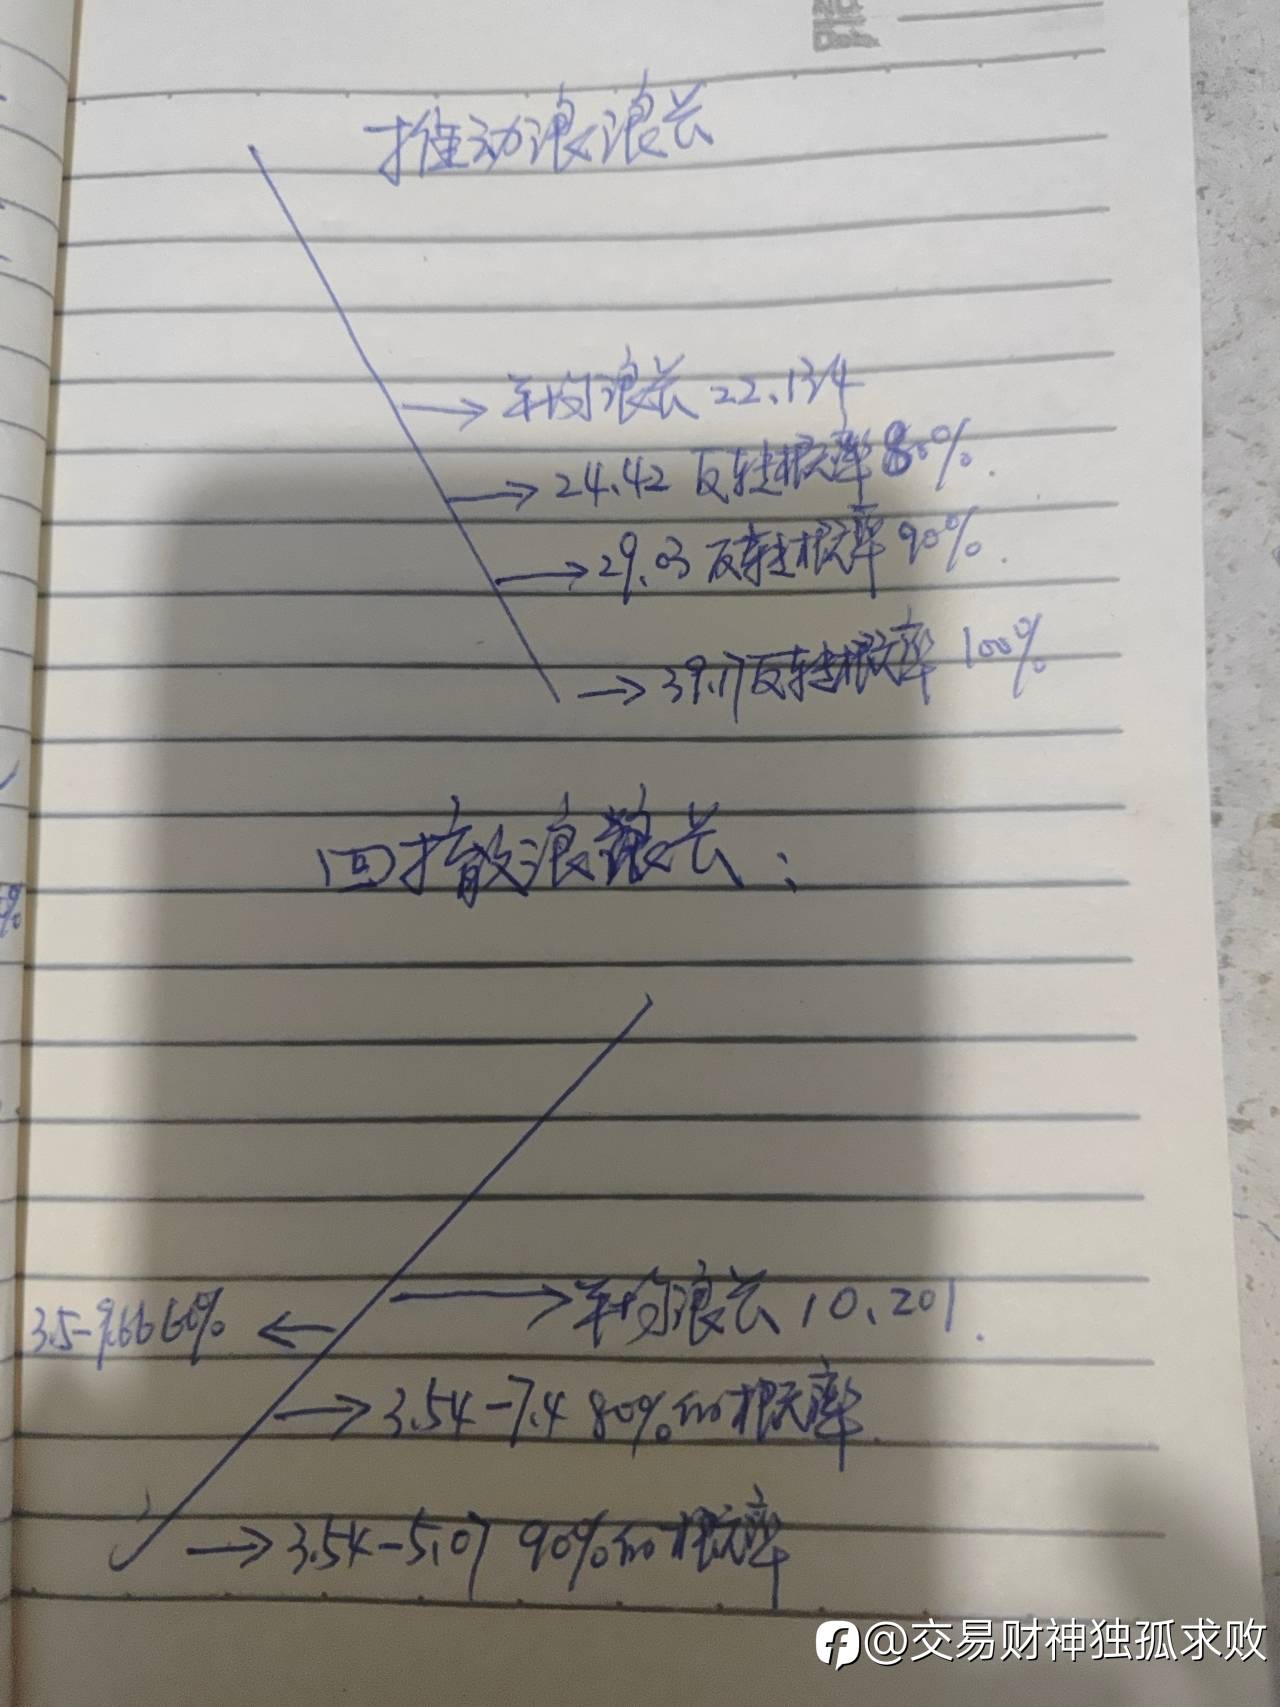 推动浪浪长
平均浪长 22.134
24.42 反转概率 80%.
29.03 反转概率 90%.
39.17 反转概率 100%
回撤浪浪长:
平均浪长 10.201.
3.5-9.66 60%
3.54-7.4 80%的概率.
3.54-5.07 90%的概率
@交易财神独孤求败